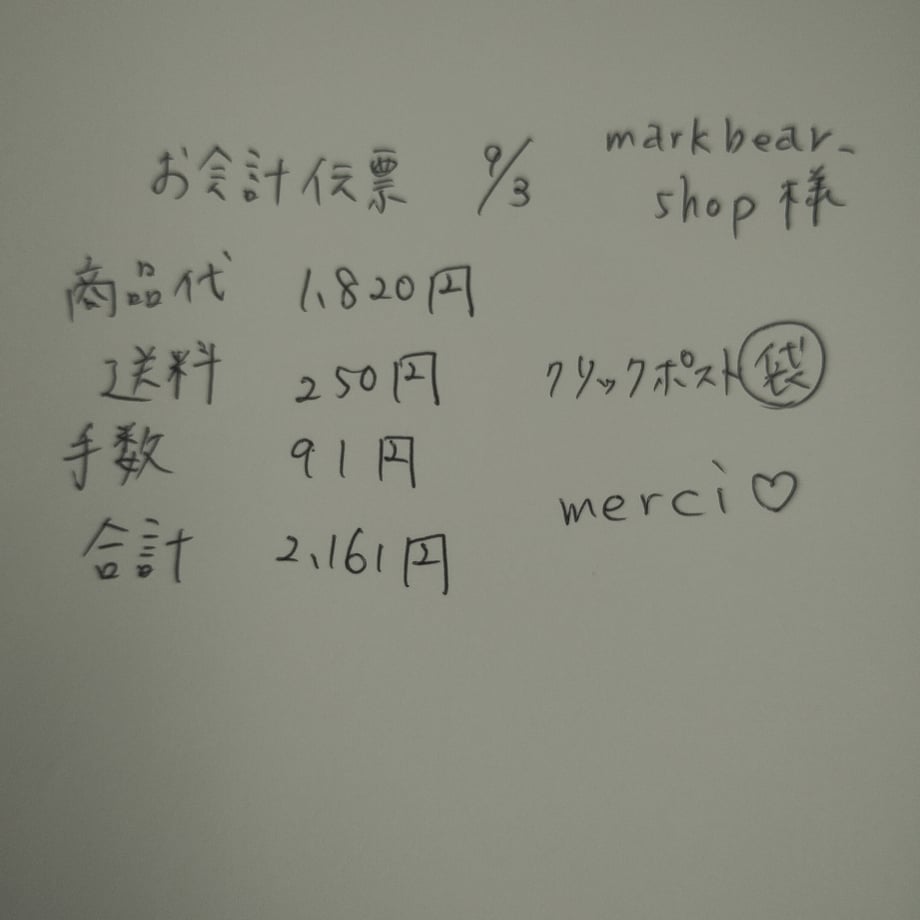 お会計伝票 9/3 markbear_
shop様
商品代 1,820円
送料 250円 クリックポスト袋
手数 91円
merci♡
合計 2,161円